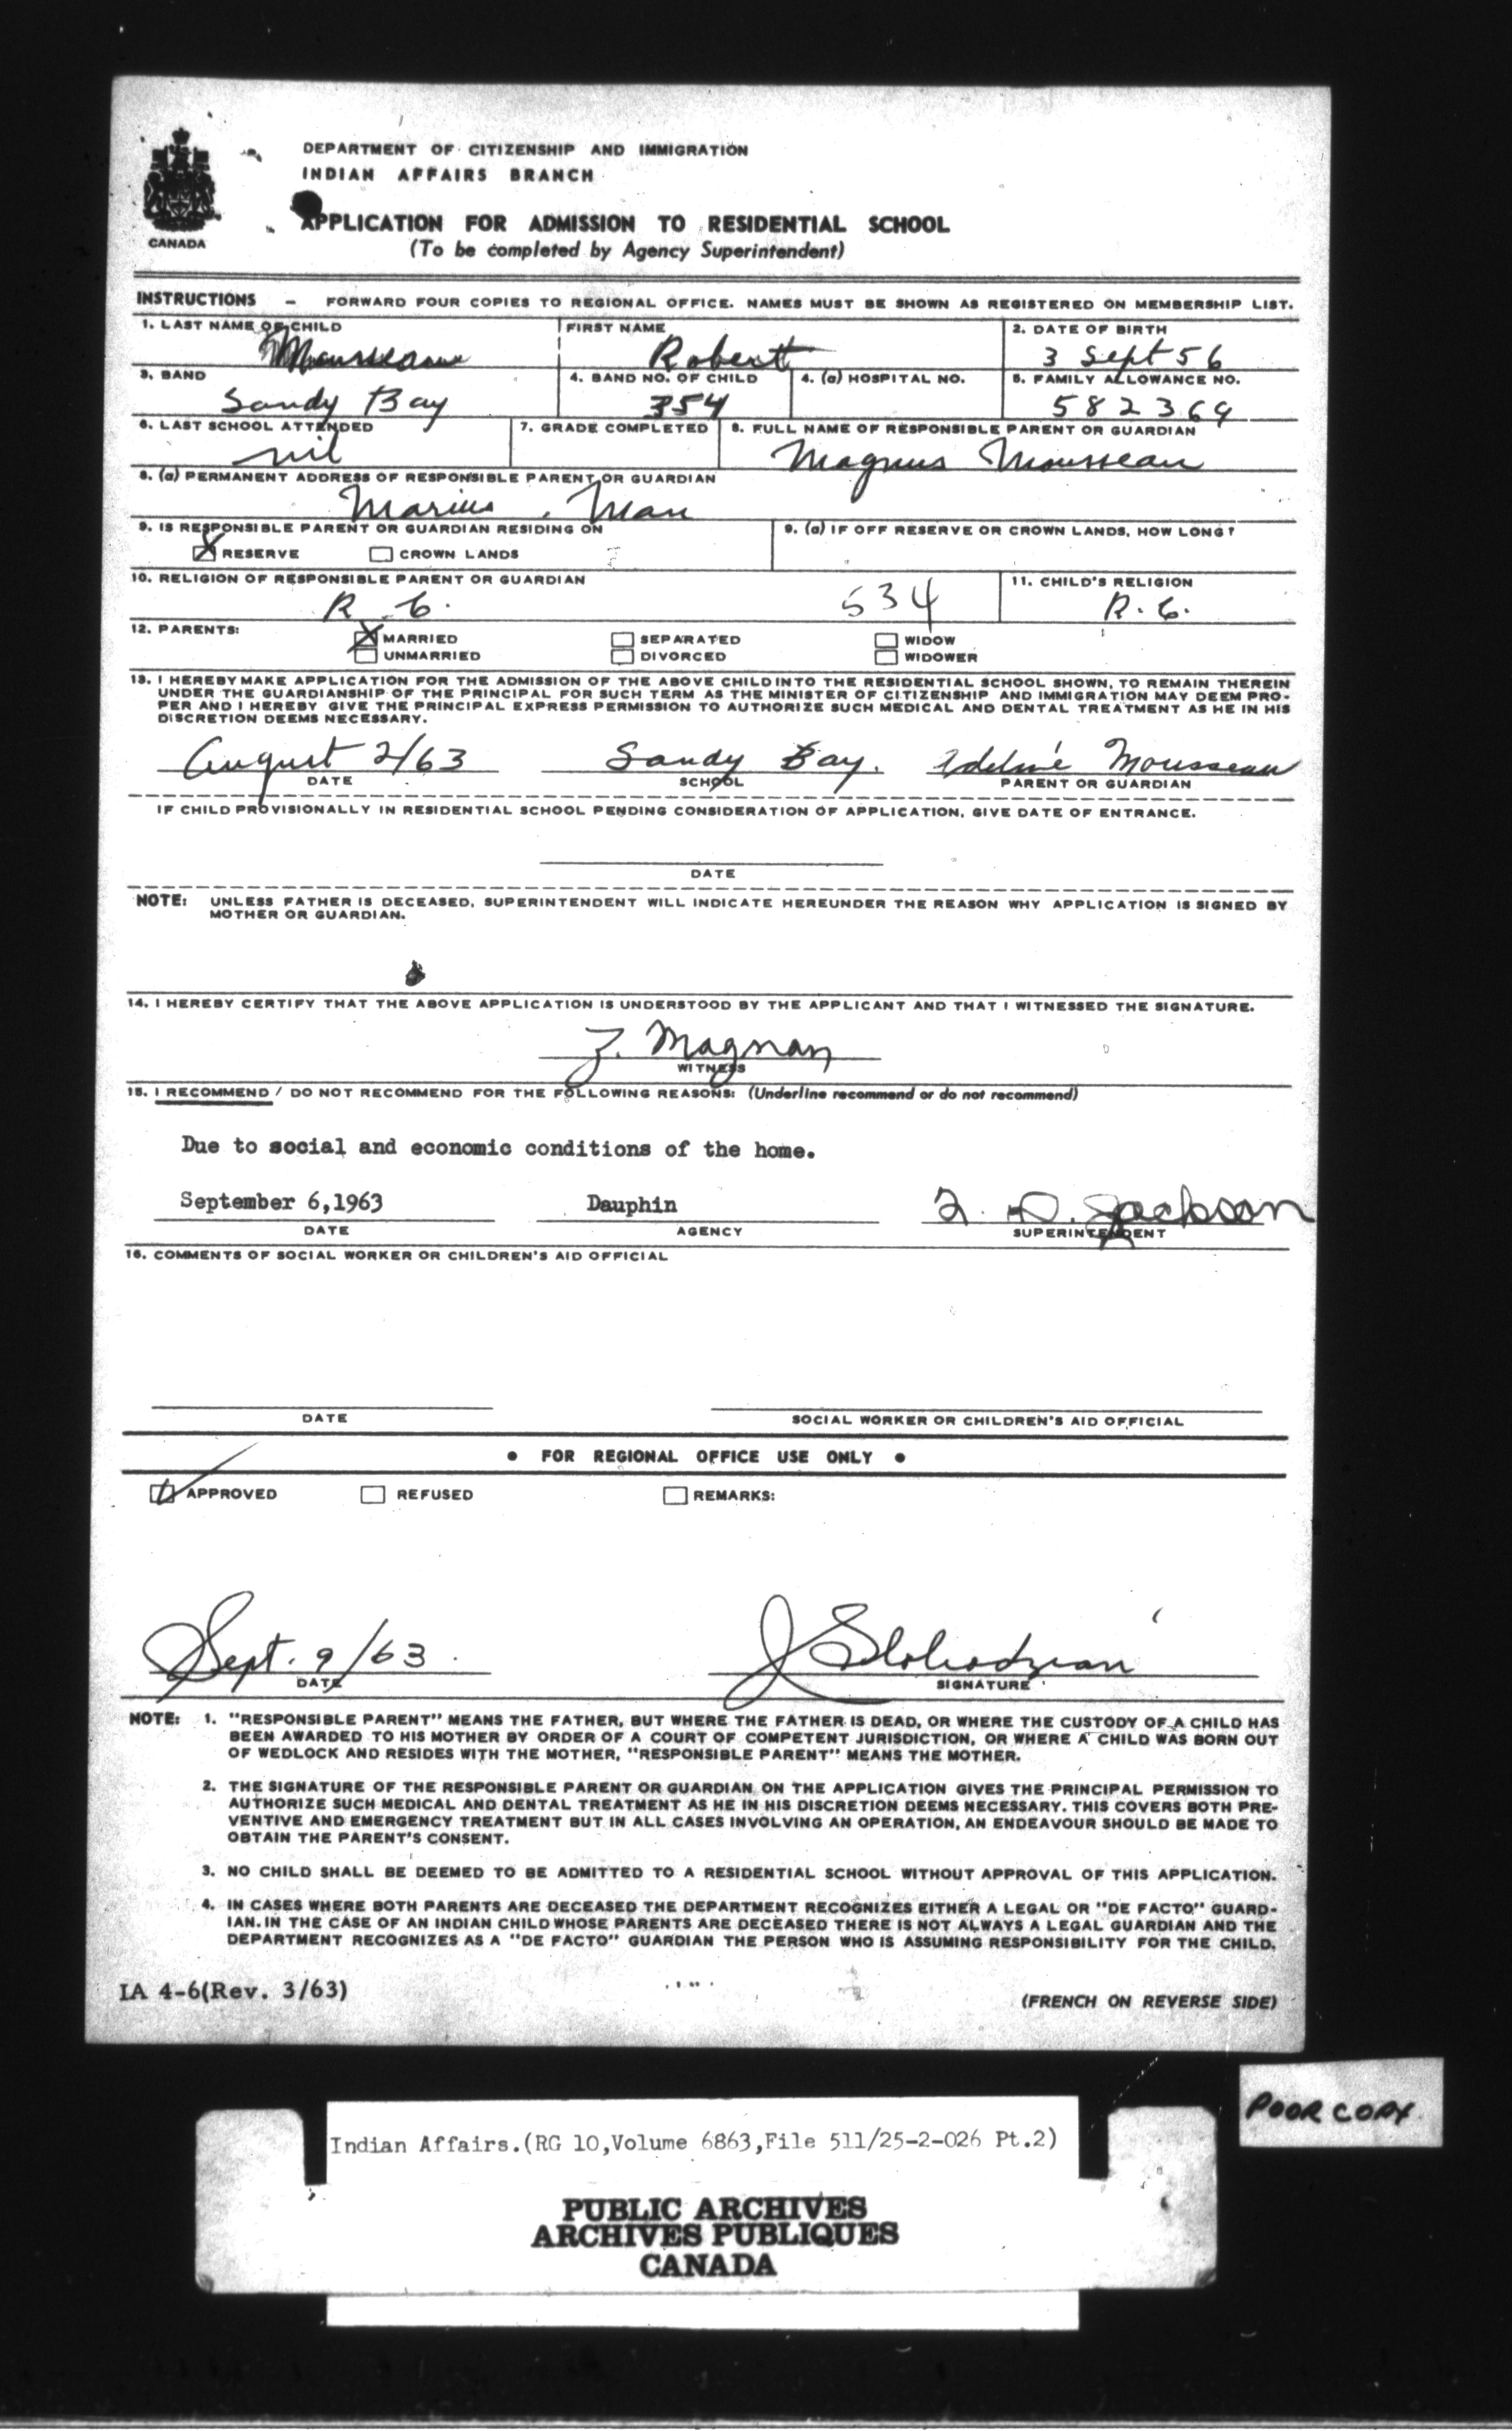 DEPARTMENT OF CITIZENSHIP AND IMMIGRATION
INDIAN AFFAIRS BRANCH
APPLICATION FOR ADMISSION TO RESIDENTIAL SCHOOL
(To be completed by Agency Superintendent)
CANADA
INSTRUCTIONS – FORWARD FOUR COPIES TO REGIONAL OFFICE. NAMES MUST BE SHOWN AS REGISTERED ON MEMBERSHIP LIST.
1. LAST NAME OF CHILD FIRST NAME 2. DATE OF BIRTH
Mousseau Robert 3 Sept 56
3. BAND 4. BAND NO. OF CHILD 4. (a) HOSPITAL NO. 5. FAMILY ALLOWANCE NO.
Sandy Bay 354 582369
6. LAST SCHOOL ATTENDED 7. GRADE COMPLETED 8. FULL NAME OF RESPONSIBLE PARENT OR GUARDIAN
nil Magnus Mousseau
8. (a) PERMANENT ADDRESS OF RESPONSIBLE PARENT OR GUARDIAN
Marius, Man
9. IS RESPONSIBLE PARENT OR GUARDIAN RESIDING ON 9. (a) IF OFF RESERVE OR CROWN LANDS, HOW LONG?
X RESERVE CROWN LANDS
10. RELIGION OF RESPONSIBLE PARENT OR GUARDIAN 11. CHILD'S RELIGION
R. C. 534 R. C.
12. PARENTS: X MARRIED SEPARATED WIDOW
UNMARRIED DIVORCED WIDOWER
13. I HEREBY MAKE APPLICATION FOR THE ADMISSION OF THE ABOVE CHILD INTO THE RESIDENTIAL SCHOOL SHOWN, TO REMAIN THEREIN
UNDER THE GUARDIANSHIP OF THE PRINCIPAL FOR SUCH TERM AS THE MINISTER OF CITIZENSHIP AND IMMIGRATION MAY DEEM PRO-
PER AND I HEREBY GIVE THE PRINCIPAL EXPRESS PERMISSION TO AUTHORIZE SUCH MEDICAL AND DENTAL TREATMENT AS HE IN HIS
DISCRETION DEEMS NECESSARY.
August 2/63 Sandy Bay. Adeline Mousseau
DATE SCHOOL PARENT OR GUARDIAN
IF CHILD PROVISIONALLY IN RESIDENTIAL SCHOOL PENDING CONSIDERATION OF APPLICATION, GIVE DATE OF ENTRANCE.
DATE
NOTE: UNLESS FATHER IS DECEASED, SUPERINTENDENT WILL INDICATE HEREUNDER THE REASON WHY APPLICATION IS SIGNED BY
MOTHER OR GUARDIAN.
14. I HEREBY CERTIFY THAT THE ABOVE APPLICATION IS UNDERSTOOD BY THE APPLICANT AND THAT I WITNESSED THE SIGNATURE.
Z. Magnan
WITNESS
15. I RECOMMEND / DO NOT RECOMMEND FOR THE FOLLOWING REASONS: (Underline recommend or do not recommend)
Due to social and economic conditions of the home.
September 6,1963 Dauphin D. Jackson
DATE AGENCY SUPERINTENDENT
16. COMMENTS OF SOCIAL WORKER OR CHILDREN'S AID OFFICIAL
DATE SOCIAL WORKER OR CHILDREN'S AID OFFICIAL
• FOR REGIONAL OFFICE USE ONLY •
APPROVED REFUSED REMARKS:
Sept. 9/63 J Slobodzian
DATE SIGNATURE
NOTE: 1. "RESPONSIBLE PARENT" MEANS THE FATHER, BUT WHERE THE FATHER IS DEAD, OR WHERE THE CUSTODY OF A CHILD HAS
BEEN AWARDED TO HIS MOTHER BY ORDER OF A COURT OF COMPETENT JURISDICTION, OR WHERE A CHILD WAS BORN OUT
OF WEDLOCK AND RESIDES WITH THE MOTHER, "RESPONSIBLE PARENT" MEANS THE MOTHER.
2. THE SIGNATURE OF THE RESPONSIBLE PARENT OR GUARDIAN ON THE APPLICATION GIVES THE PRINCIPAL PERMISSION TO
AUTHORIZE SUCH MEDICAL AND DENTAL TREATMENT AS HE IN HIS DISCRETION DEEMS NECESSARY. THIS COVERS BOTH PRE-
VENTIVE AND EMERGENCY TREATMENT BUT IN ALL CASES INVOLVING AN OPERATION, AN ENDEAVOUR SHOULD BE MADE TO
OBTAIN THE PARENT'S CONSENT.
3. NO CHILD SHALL BE DEEMED TO BE ADMITTED TO A RESIDENTIAL SCHOOL WITHOUT APPROVAL OF THIS APPLICATION.
4. IN CASES WHERE BOTH PARENTS ARE DECEASED THE DEPARTMENT RECOGNIZES EITHER A LEGAL OR "DE FACTO" GUARD-
IAN. IN THE CASE OF AN INDIAN CHILD WHOSE PARENTS ARE DECEASED THERE IS NOT ALWAYS A LEGAL GUARDIAN AND THE
DEPARTMENT RECOGNIZES AS A "DE FACTO" GUARDIAN THE PERSON WHO IS ASSUMING RESPONSIBILITY FOR THE CHILD.
IA 4-6(Rev. 3/63) (FRENCH ON REVERSE SIDE)
POOR COPY
Indian Affairs.(RG 10,Volume 6863,File 511/25-2-026 Pt.2)
PUBLIC ARCHIVES
ARCHIVES PUBLIQUES
CANADA